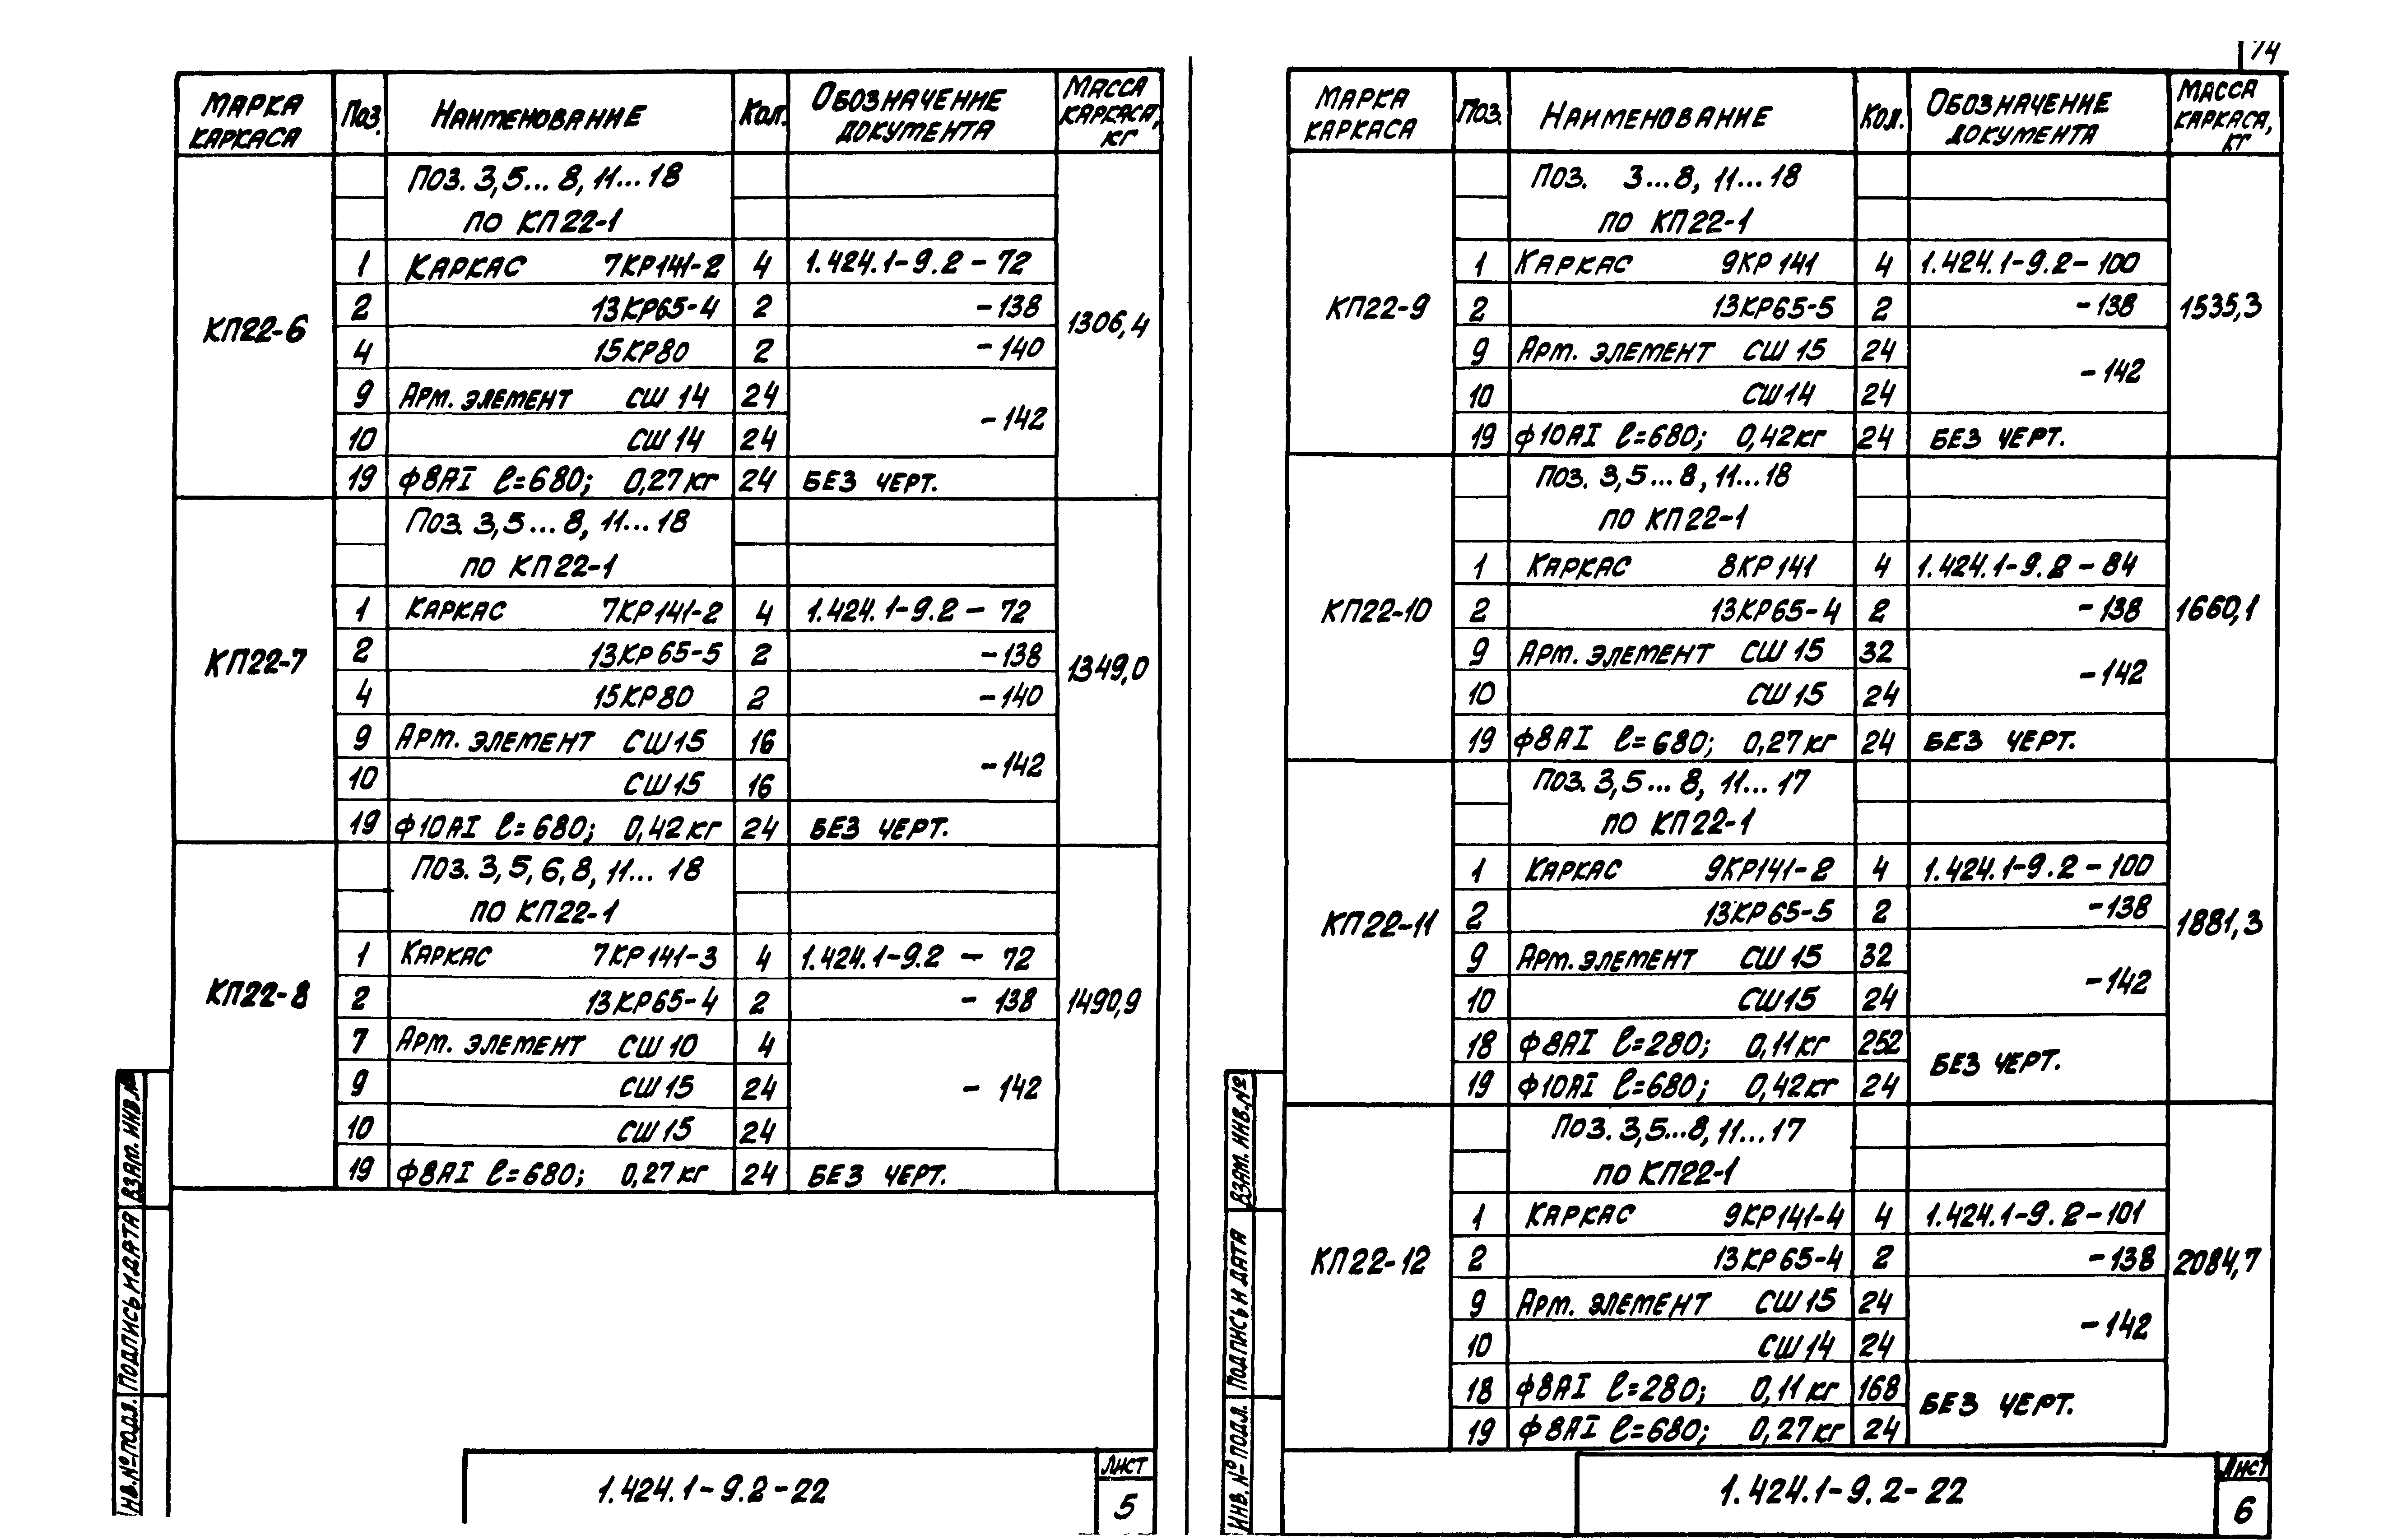 МАРКА КАРКАСА Поз. НАИМЕНОВАНИЕ Кол. ОБОЗНАЧЕНИЕ ДОКУМЕНТА МАССА КАРКАСА, КГ
ПОЗ. 3,5...8, 11...18
ПО КП22-1
1 КАРКАС 7КР141-2 4 1.424.1-9.2-72
2 13КР65-4 2 -138
КП22-6 1306,4
4 15КР80 2 -140
9 АРМ. ЭЛЕМЕНТ СШ14 24
-142
10 СШ14 24
19 ф8АI ℓ=680; 0,27кг 24 БЕЗ ЧЕРТ.
ПОЗ. 3,5...8, 11...18
ПО КП22-1
1 КАРКАС 7КР141-2 4 1.424.1-9.2-72
2 13КР65-5 2 -138
КП22-7 1349,0
4 15КР80 2 -140
9 АРМ. ЭЛЕМЕНТ СШ15 16
-142
10 СШ15 16
19 ф10АI ℓ=680; 0,42кг 24 БЕЗ ЧЕРТ.
ПОЗ. 3,5,6,8, 11...18
ПО КП22-1
1 КАРКАС 7КР141-3 4 1.424.1-9.2-72
КП22-8 2 13КР65-4 2 -138 1490,9
7 АРМ. ЭЛЕМЕНТ СШ10 4
9 СШ15 24 -142
10 СШ15 24
19 ф8АI ℓ=680; 0,27кг 24 БЕЗ ЧЕРТ.
ВЗАМ. ИНВ.№
ПОДПИСЬ И ДАТА
ИНВ.№ПОДЛ.
1.424.1-9.2-22
ЛИСТ
5
74
МАРКА КАРКАСА ПОЗ. НАИМЕНОВАНИЕ КОЛ. ОБОЗНАЧЕНИЕ ДОКУМЕНТА МАССА КАРКАСА, КГ
ПОЗ. 3...8, 11...18
ПО КП22-1
1 КАРКАС 9КР141 4 1.424.1-9.2-100
КП22-9 2 13КР65-5 2 -138 1535,3
9 АРМ. ЭЛЕМЕНТ СШ15 24
-142
10 СШ14 24
19 ф10АI ℓ=680; 0,42кг 24 БЕЗ ЧЕРТ.
ПОЗ. 3,5...8, 11...18
ПО КП22-1
1 КАРКАС 8КР141 4 1.424.1-9.2-84
КП22-10 2 13КР65-4 2 -138 1660,1
9 АРМ. ЭЛЕМЕНТ СШ15 32
-142
10 СШ15 24
19 ф8АI ℓ=680; 0,27кг 24 БЕЗ ЧЕРТ.
ПОЗ. 3,5...8, 11...17
ПО КП22-1
1 КАРКАС 9КР141-2 4 1.424.1-9.2-100
КП22-11 2 13КР65-5 2 -138 1881,3
9 АРМ. ЭЛЕМЕНТ СШ15 32
-142
10 СШ15 24
18 ф8АI ℓ=280; 0,11кг 252
БЕЗ ЧЕРТ.
19 ф10АI ℓ=680; 0,42кг 24
ПОЗ. 3,5...8, 11...17
ПО КП22-1
1 КАРКАС 9КР141-4 4 1.424.1-9.2-101
КП22-12 2 13КР65-4 2 -138 2084,7
9 АРМ. ЭЛЕМЕНТ СШ15 24
-142
10 СШ14 24
18 ф8АI ℓ=280; 0,11кг 168
БЕЗ ЧЕРТ.
19 ф8АI ℓ=680; 0,27кг 24
ВЗАМ. ИНВ.№
ПОДПИСЬ И ДАТА
ИНВ.№ ПОДЛ.
1.424.1-9.2-22
ЛИСТ
6